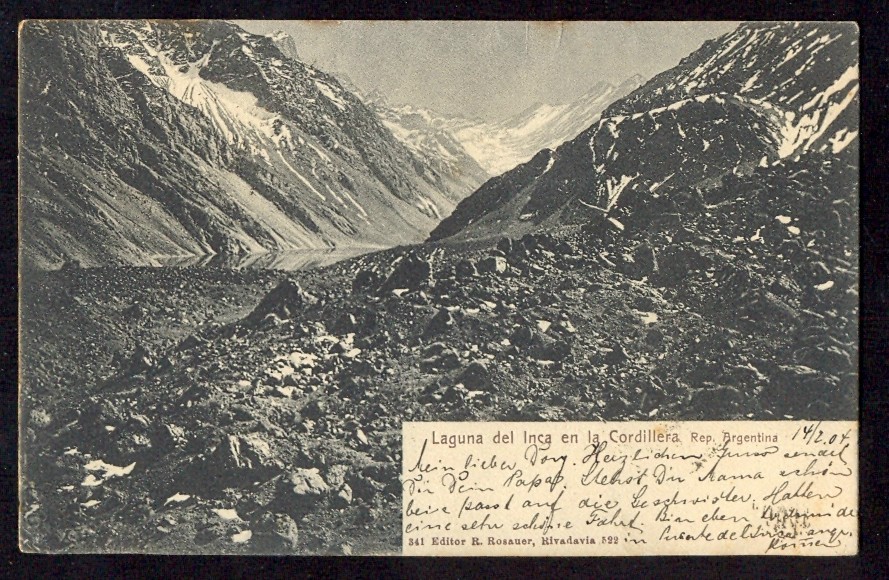 Laguna del Inca en la Cordillera Rep. Argentina 14/2.04
Mein lieber Herzlichen Gruss sendet
Dir Dein Papa. Dir Mama schön
passt auf die Geschwister. Hatten
eine sehr schöne Fahrt. Bin eben
341 Editor R. Rosauer, Rivadavia 522 in Puente del Inca ange
kommen